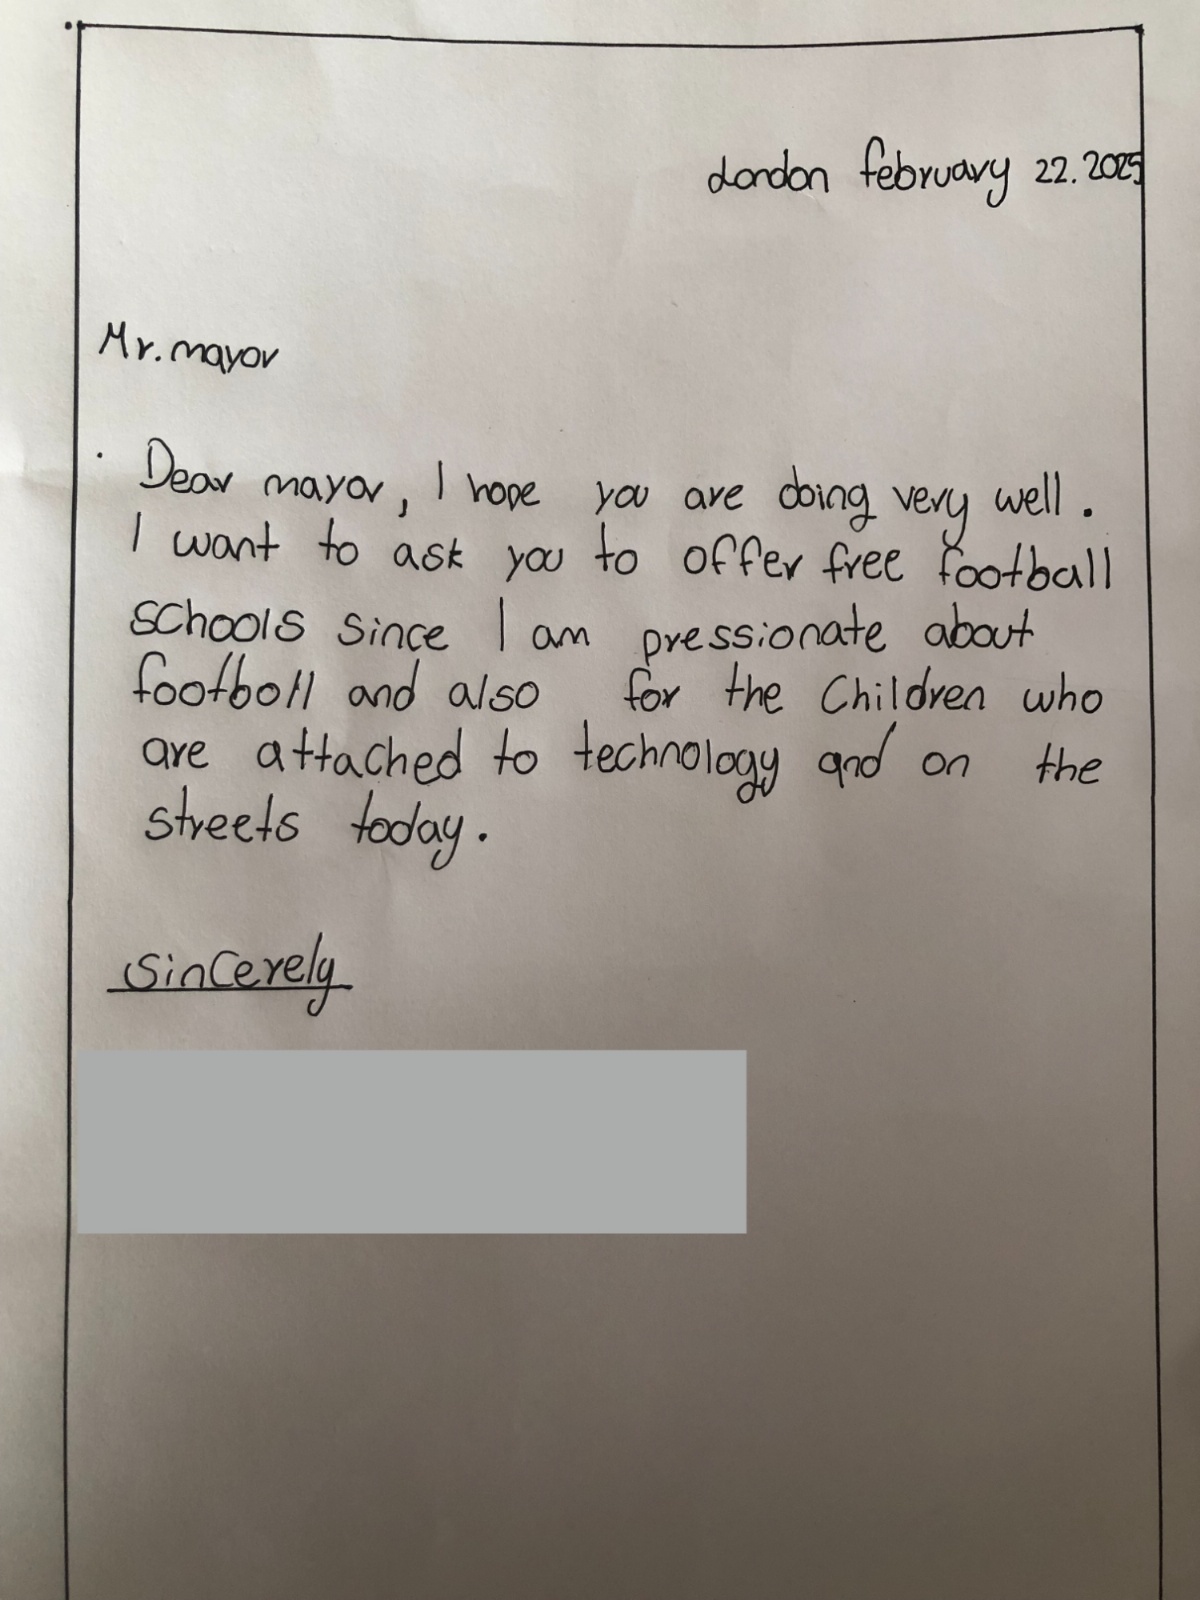 London february 22. 2025
Mr. mayor
Dear mayor, I hope you are doing very well.
I want to ask you to offer free football
schools since I am pressionate about
football and also for the Children who
are attached to technology and on the
streets today.
Sincerely